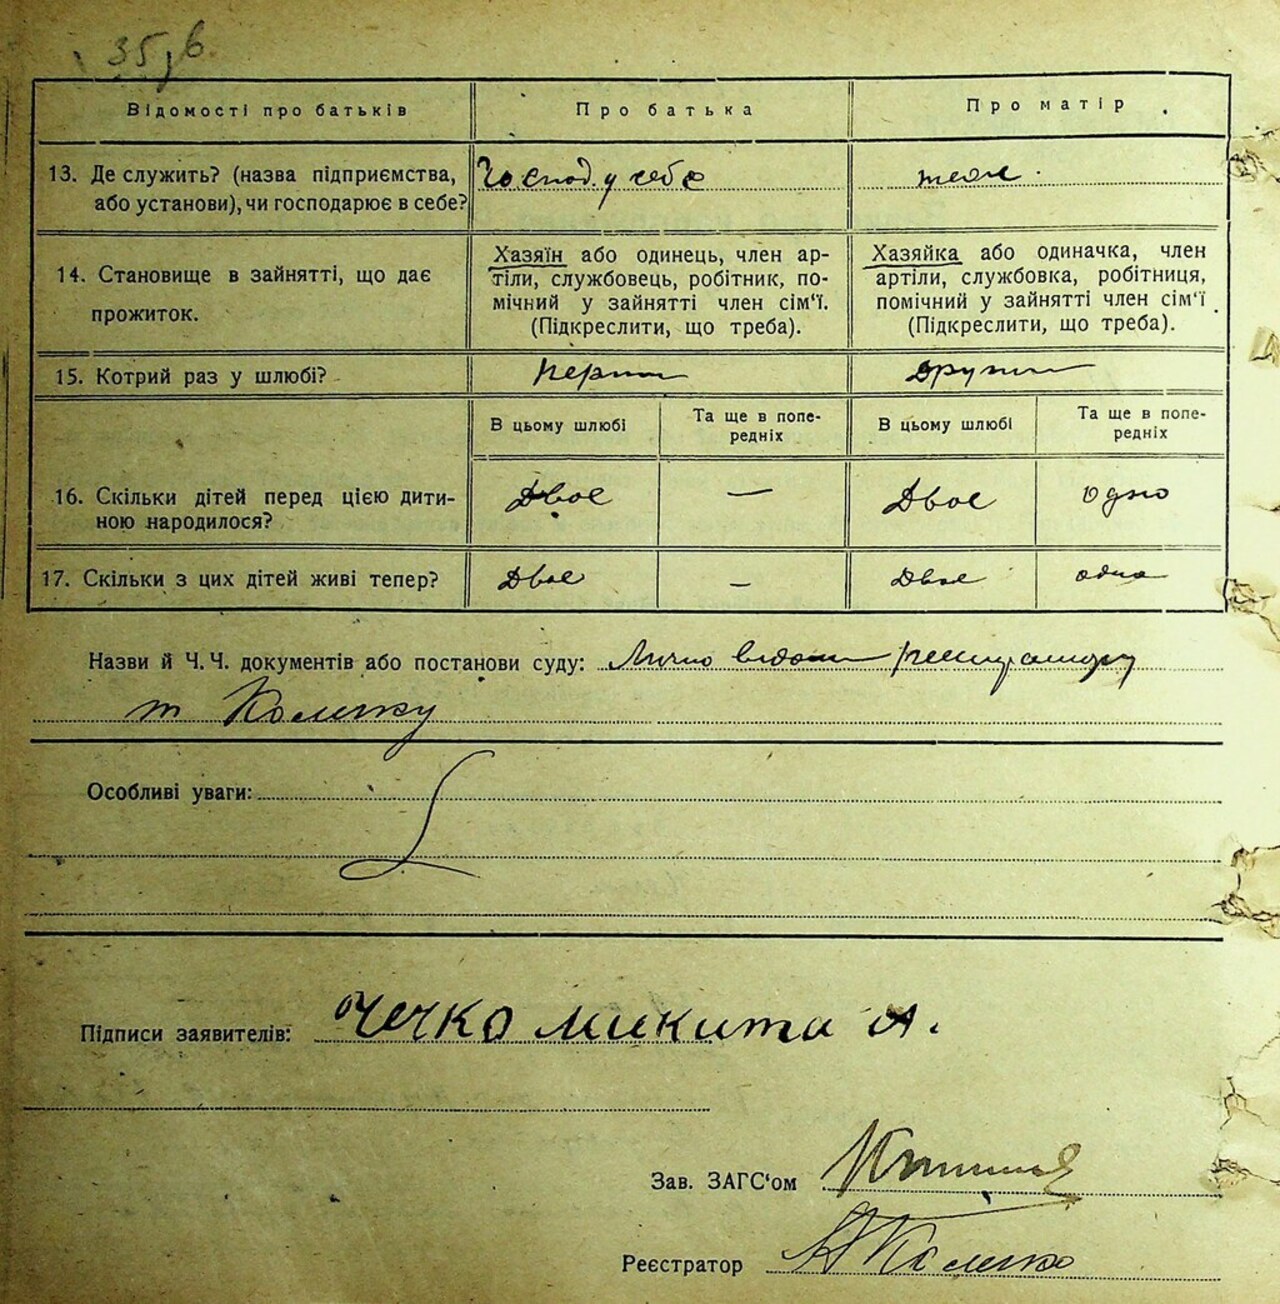 35 зв.
Відомості про батьків
Про батька
Про матір
13. Де служить? (назва підприємства,
або установи), чи господарює в себе?
Господ. у себе
теж.
14. Становище в зайнятті, що дає
прожиток.
Хазяїн або одинець, член ар-
тіли, службовець, робітник, по-
мічний у зайнятті член сім'ї.
(Підкреслити, що треба).
Хазяйка або одиначка, член
артіли, службовка, робітниця,
помічний у зайнятті член сім'ї
(Підкреслити, що треба).
15. Котрий раз у шлюбі?
В цьому шлюбі
Та ще в попе-
редніх
В цьому шлюбі
Та ще в попе-
редніх
16. Скільки дітей перед цією дити-
ною народилося?
Двоє
—
Двоє
одно
17. Скільки з цих дітей живі тепер?
Двоє
—
Двоє
одно
Назви й Ч. Ч. документів або постанови суду: Лично
т
Особливі уваги:
Підписи заявителів: Чечко Микита А.
Зав. ЗАГС'ом
Реєстратор